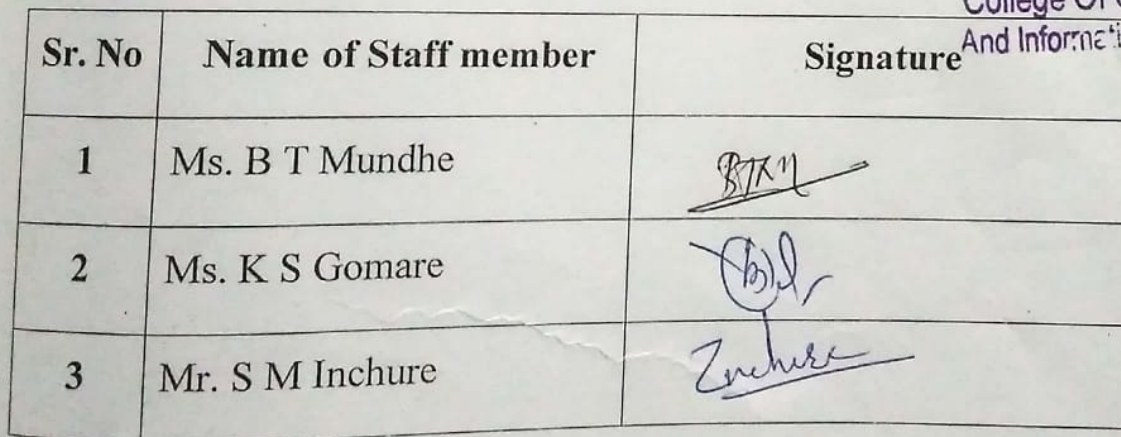 College Of
And Informati
Sr. No Name of Staff member Signature
1 Ms. B T Mundhe
2 Ms. K S Gomare
3 Mr. S M Inchure Inchure